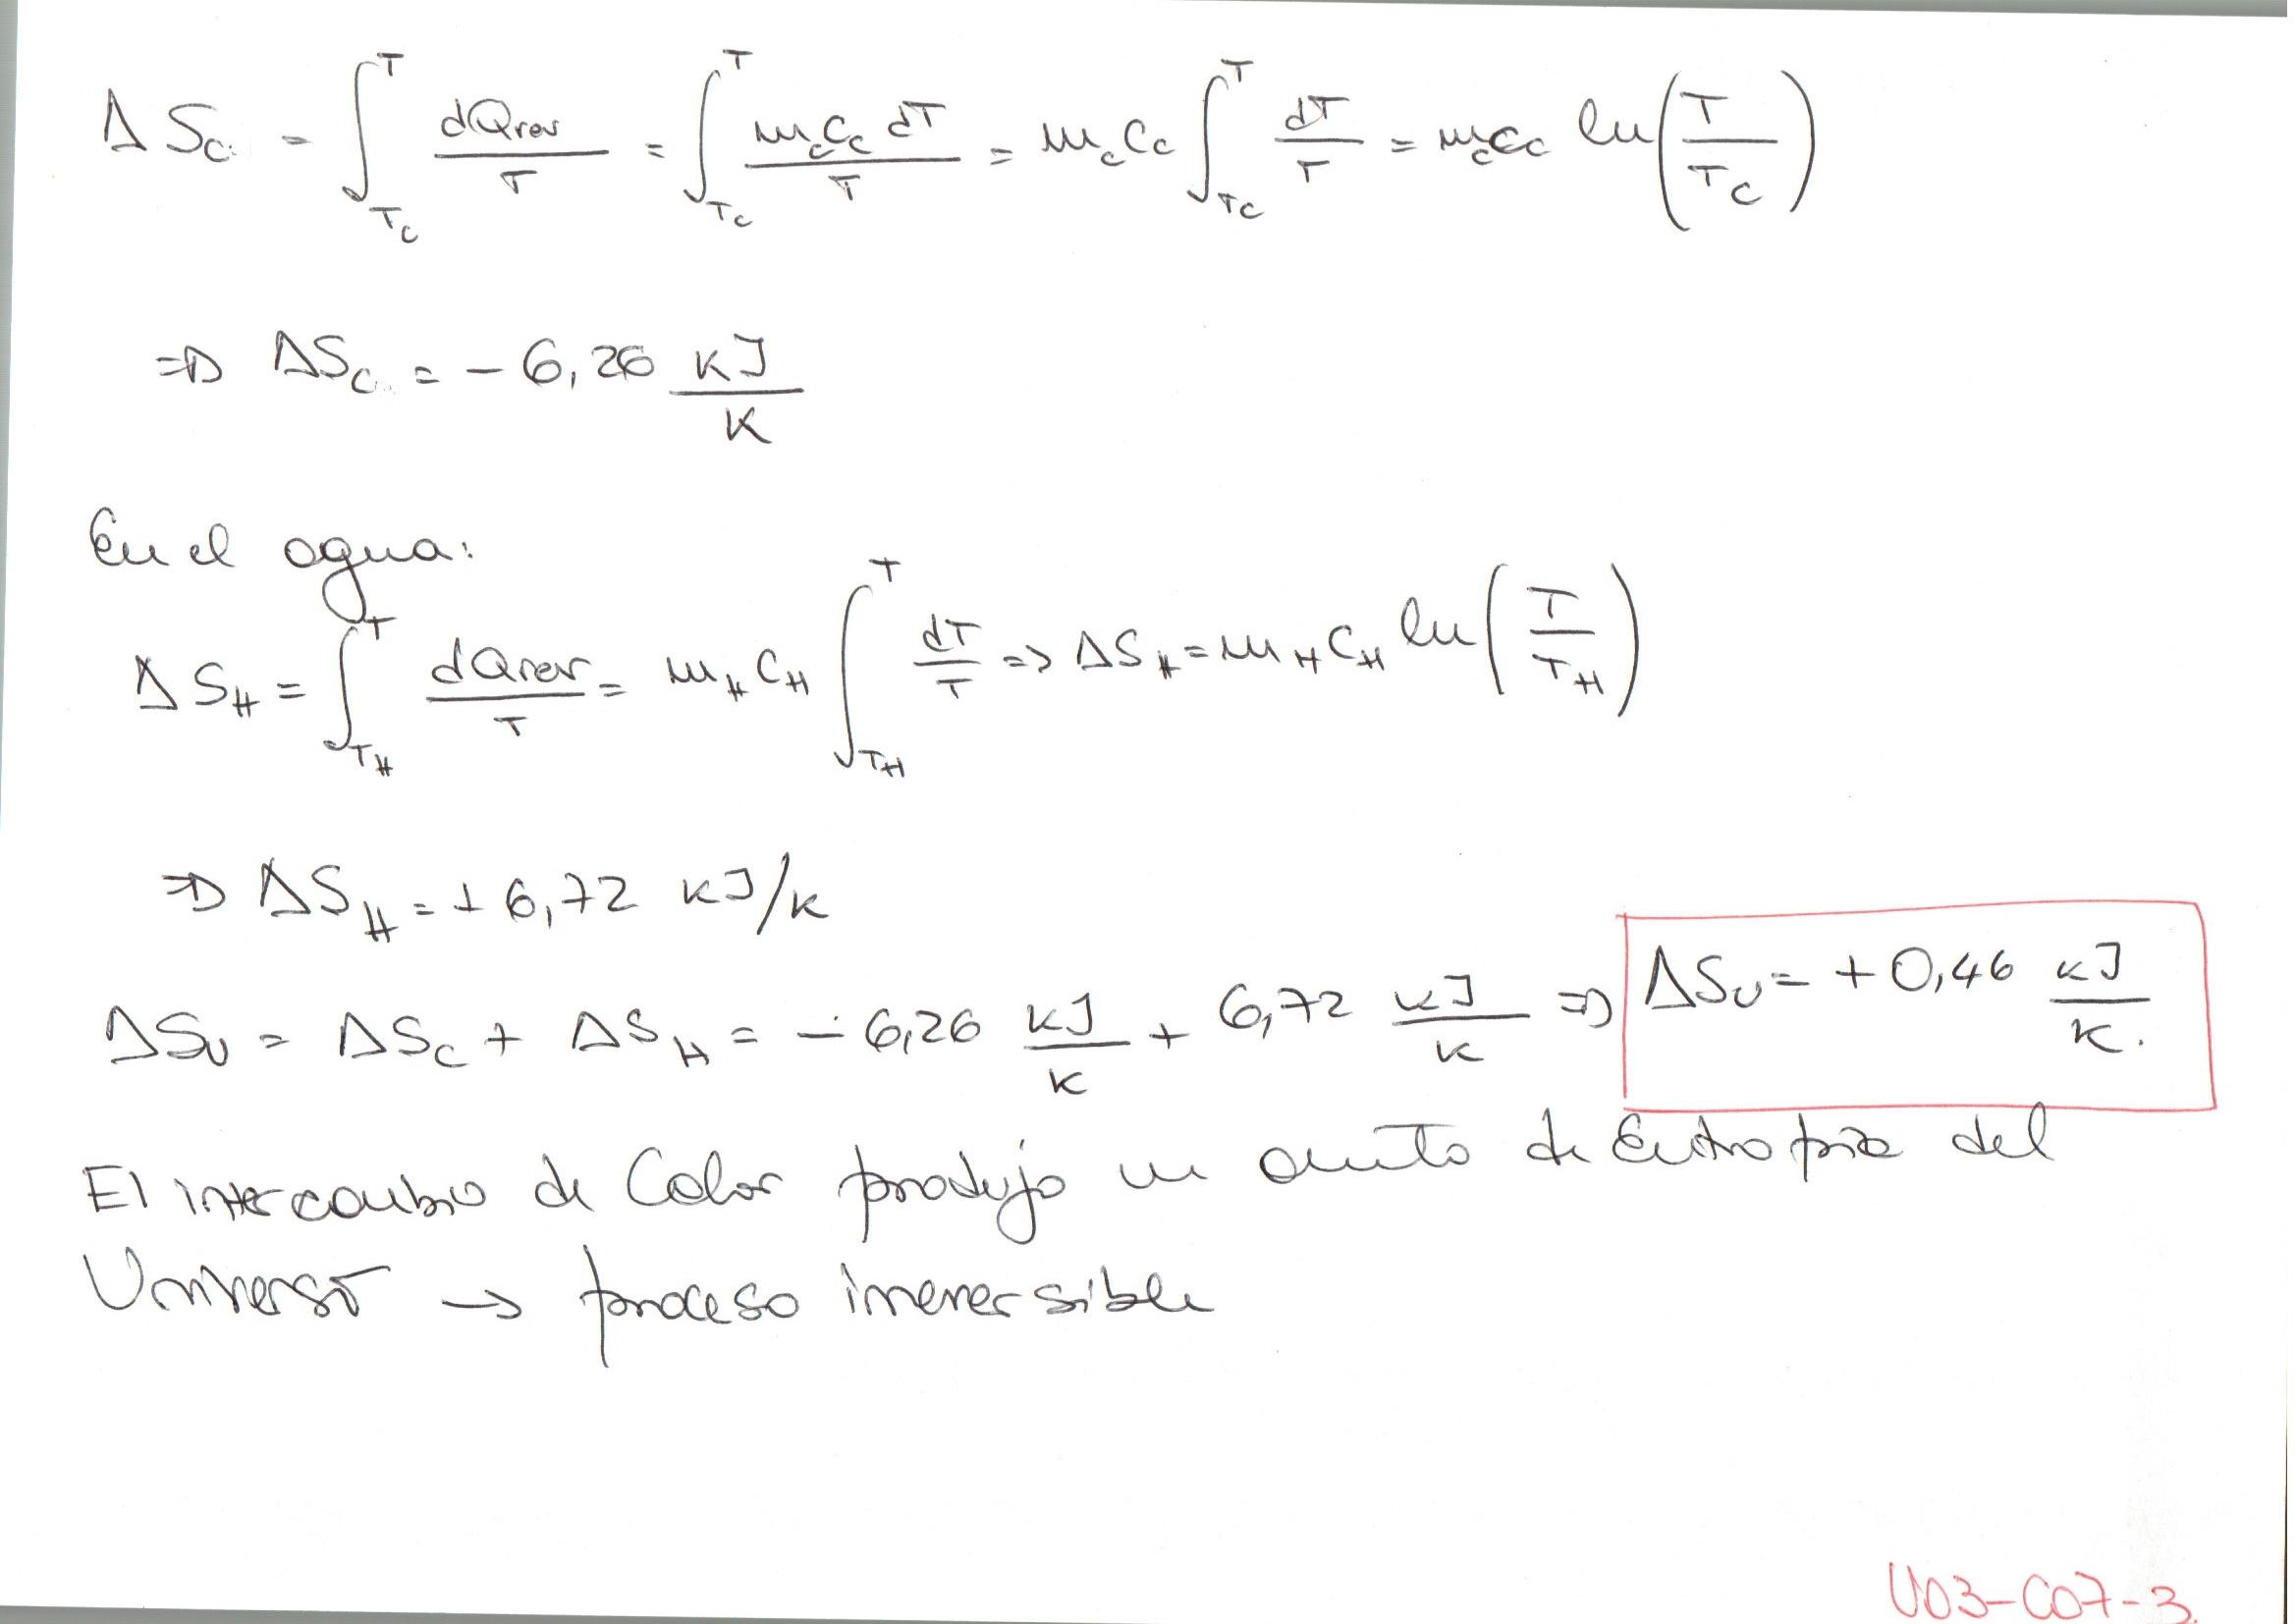 ΔS_C = ∫_{T_C}^{T} dQrev/T = ∫_{T_C}^{T} m_c C_c dT/T = m_c C_c ∫_{T_C}^{T} dT/T = m_c C_c ln(T/T_C)
⇒ ΔS_C = - 6,26 kJ/K
En el agua:
ΔS_H = ∫_{T_H}^{T} dQrev/T = m_H C_H ∫_{T_H}^{T} dT/T => ΔS_H = m_H C_H ln(T/T_H)
⇒ ΔS_H = + 6,72 kJ/K
ΔS_U = ΔS_C + ΔS_H = - 6,26 kJ/K + 6,72 kJ/K ⇒ ΔS_U = + 0,46 kJ/K.
El intercambio de Calor produjo un de Entropía del
Universo → proceso irreversible
U03-C07-3